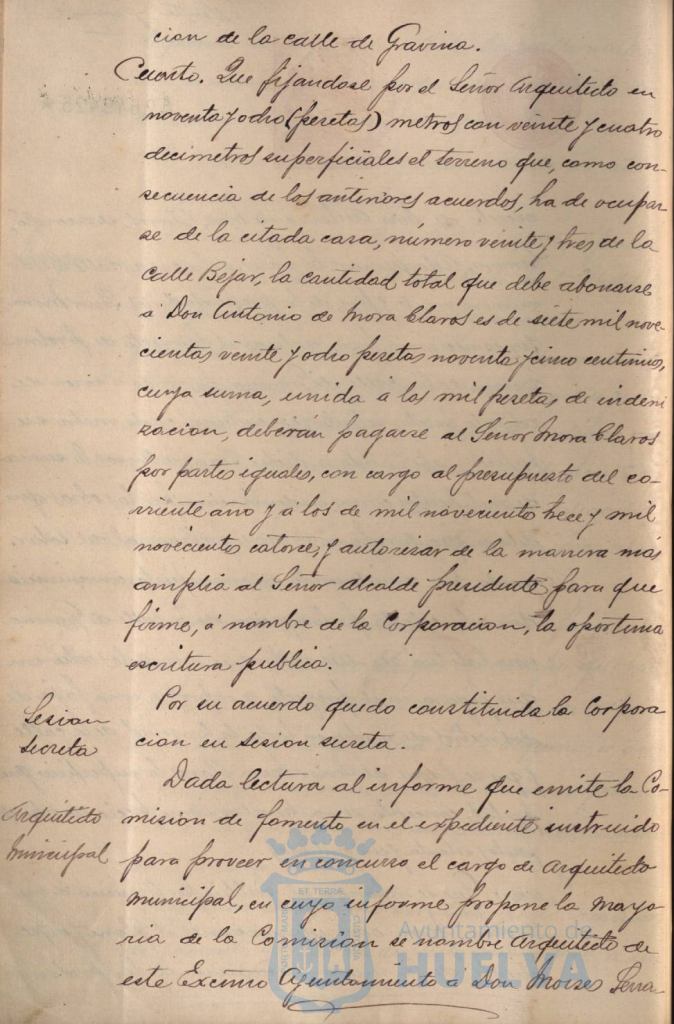 cion de la calle de Gravina.
Cuarto. Que fijandose por el Señor Arquitecto en
noventa y ocho (pesetas) metros con veinte y cuatro
decimetros superficiales el terreno que, como con-
secuencia de los anteriores acuerdos, ha de ocupar-
se de la citada casa, número veinte y tres de la
calle Bejar, la cantidad total que debe abonarse
á Don Antonio de Mora Claros es de siete mil nove-
cientas veinte y ocho pesetas noventa y cinco centimos,
cuya suma, unida á las mil pesetas de indemi
zacion, deberán pagarse al Señor Mora Claros
por partes iguales, con cargo al presupuesto del co-
rriente año y á los de mil novecientos trece y mil
novecientos catorce, y autorizar de la manera más
amplia al Señor Alcalde presidente para que
firme, á nombre de la Corporacion, la oportuna
escritura publica.
Sesion
secreta
Por su acuerdo quedo constituida la Corpora
cion en sesion secreta.
Arquitecto
municipal
Dada lectura al informe que emite la Co-
mision de fomento en el expediente instruido
para proveer en concurso el cargo de Arquitecto
municipal, en cuyo informe propone la mayo
ria de la Comision se nombre Arquitecto de
este Excmo Ayuntamiento á Don Moises Serra-
Ayuntamiento de
HUELVA